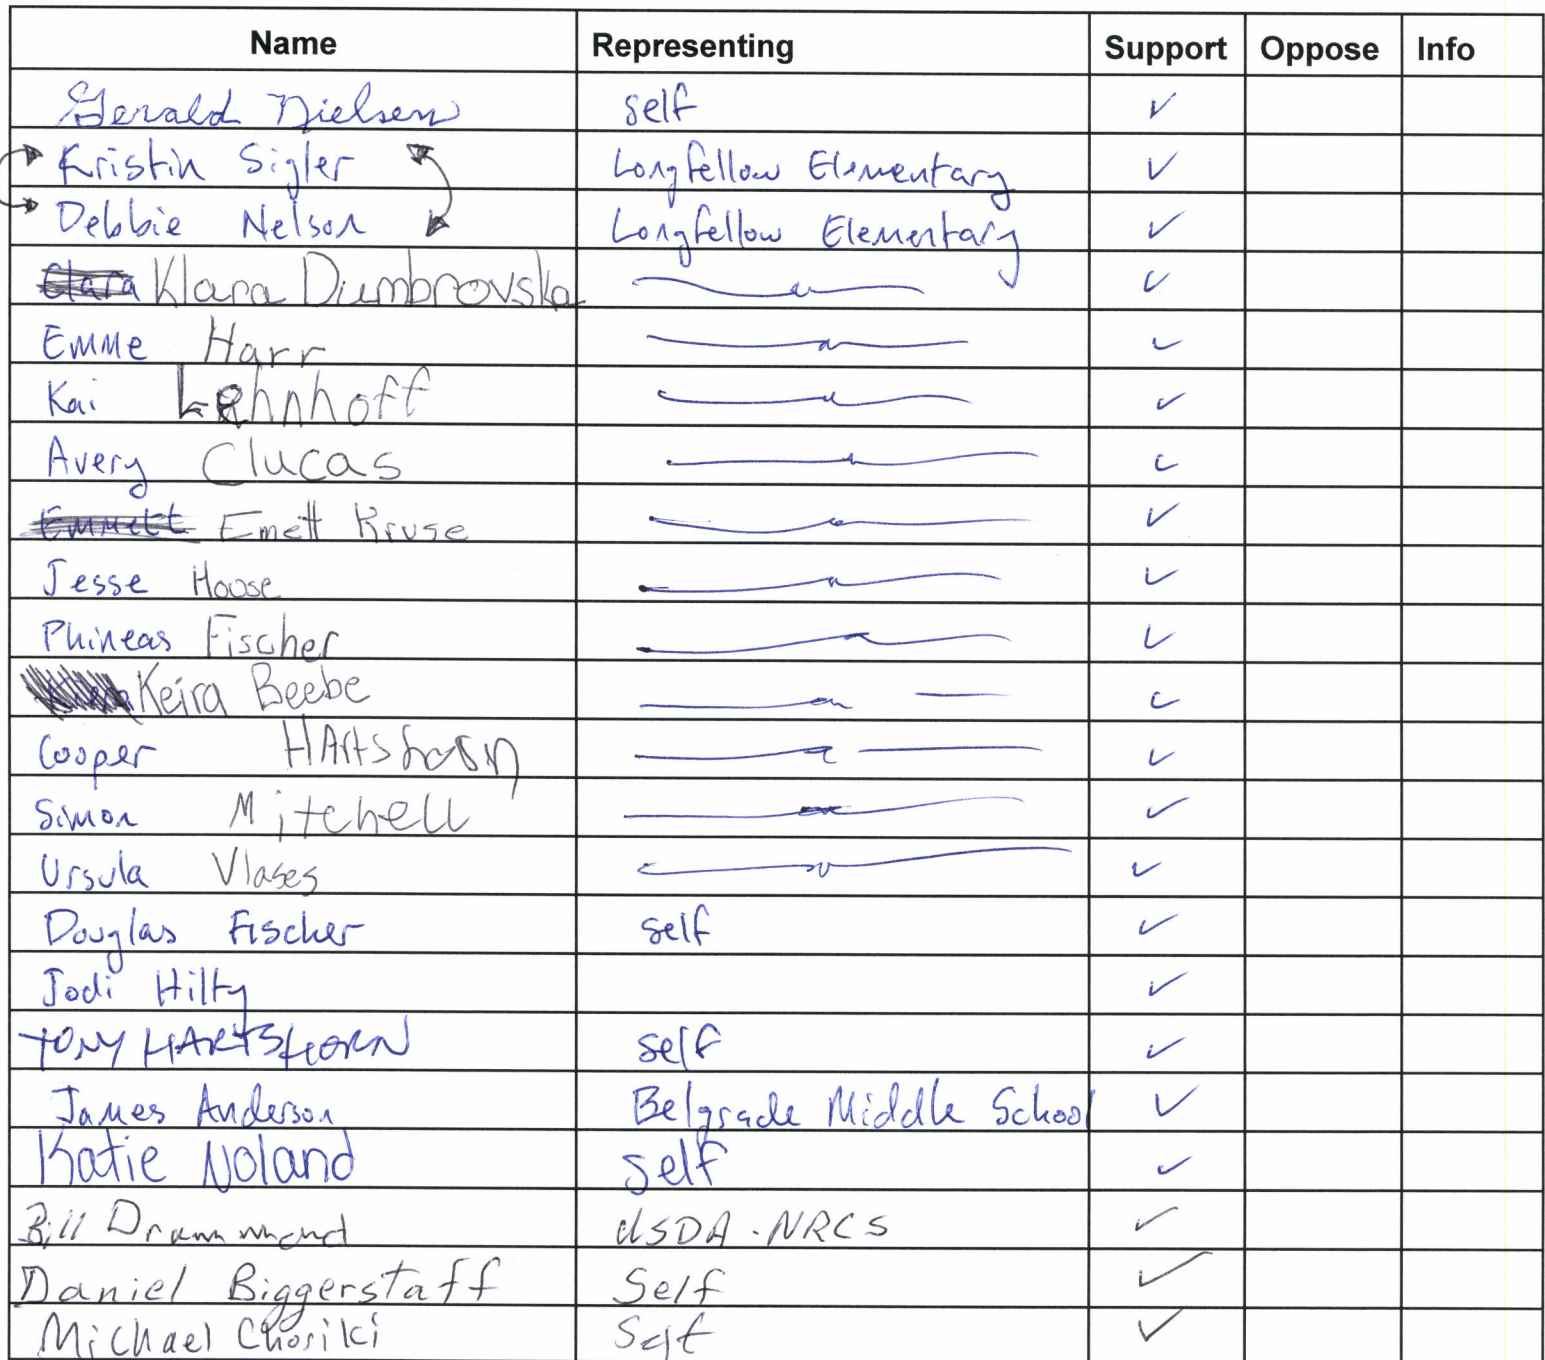 Name Representing Support Oppose Info
Gerald Nielsen self ✓
Kristin Sigler Longfellow Elementary ✓
Debbie Nelson Longfellow Elementary ✓
Clara Klara Dumbrovska ✓
Emme Harr ✓
Kai Lehnhoff ✓
Avery Clucas ✓
Emmett Emett Kruse ✓
Jesse House ✓
Phineas Fischer ✓
Keira Beebe ✓
Cooper HArtshorn ✓
Simon Mitchell ✓
Ursula Vlases ✓
Douglas Fischer self ✓
Jodi Hilty ✓
TONY HARTSHORN self ✓
James Anderson Belgrade Middle School ✓
Katie Noland self ✓
Bill Drummond USDA-NRCS ✓
Daniel Biggerstaff Self ✓
Michael Choriki Self ✓